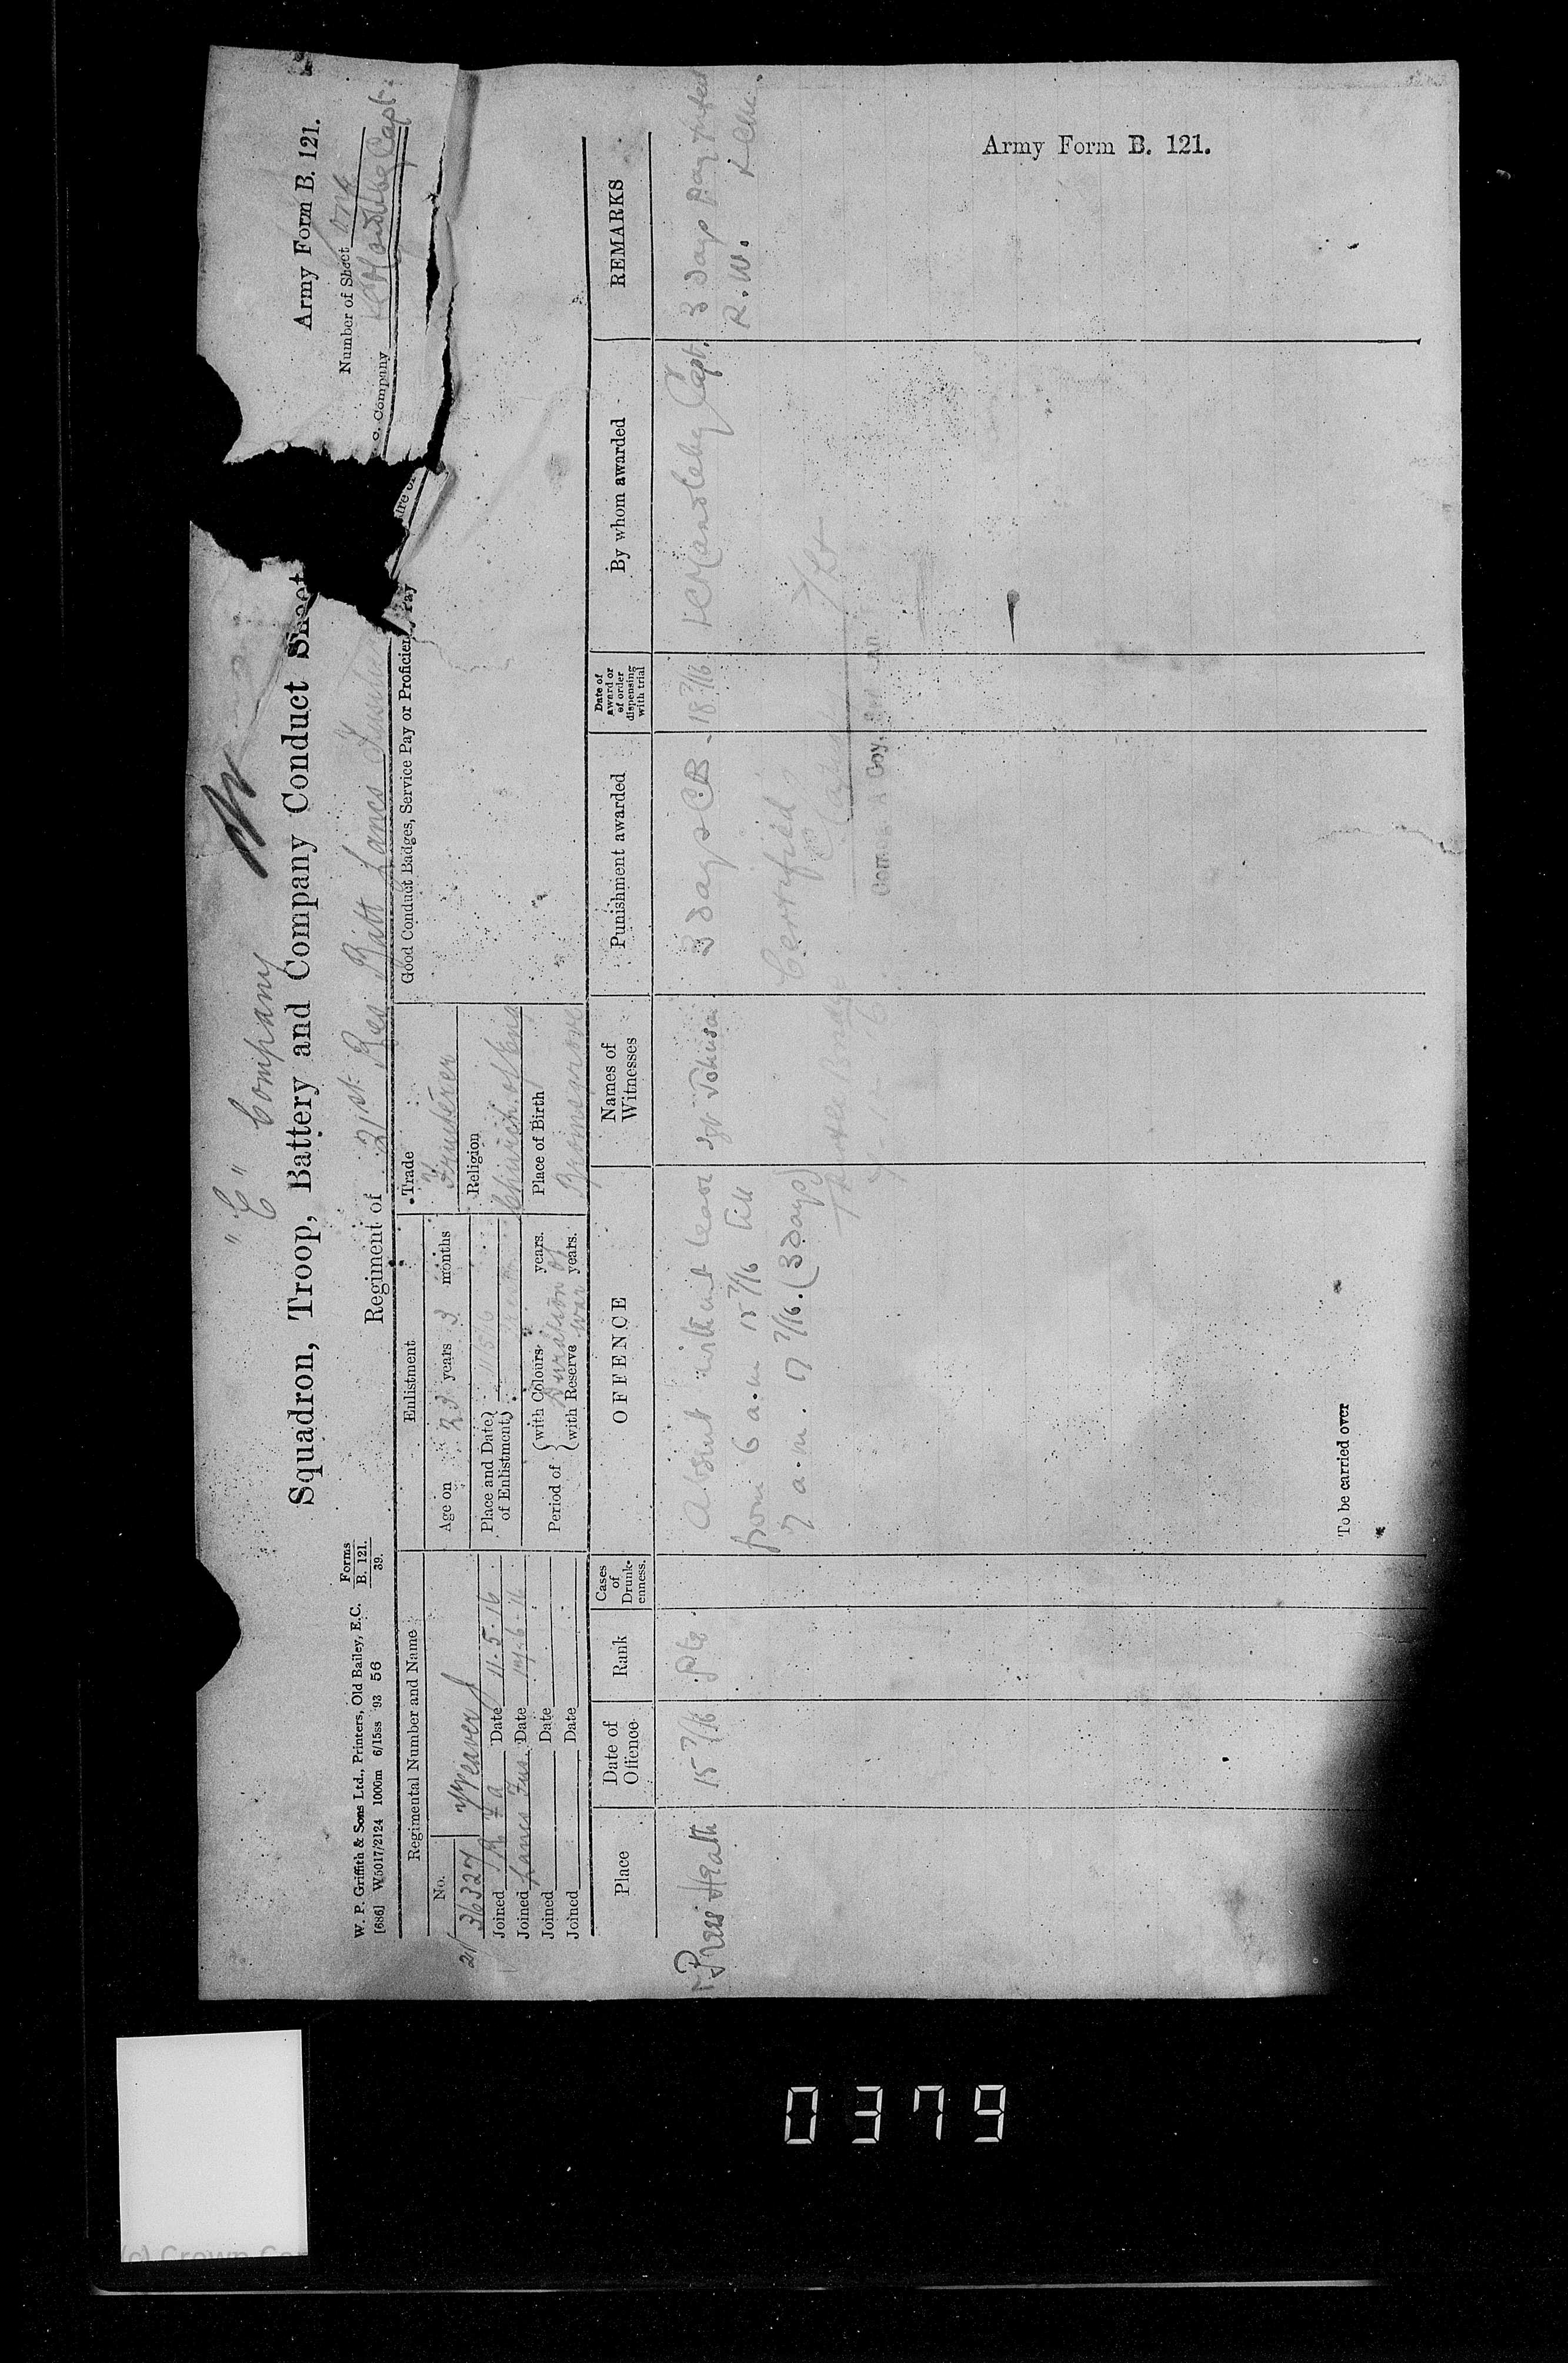 "C" Company
Army Form B. 121.
Squadron, Troop, Battery and Company Conduct Sheet
Number of Sheet one
W. P. Griffith & Sons Ltd., Printers, Old Bailey, E.C.
[686] W5017/2124 1000m 6/15ss 93 56
Forms
B. 121.
39.
Regiment of 21st Res Batt Lancs Fusiliers
C. Company Capt.
Regimental Number and Name
No.
21/36327 Weaver J
Joined R F A Date 11.5.16
Joined Lancs Fus. Date 17.6.16
Joined Date
Joined Date
Enlistment
Age on 23 years 3 months
Place and Date of Enlistment 11/5/16
Period of with Colours years.
with Reserve years.
Duration of war
Trade
Fruiterer
Religion
Church of Eng
Place of Birth
Bromsgrove
Good Conduct Badges, Service Pay or Proficiency Pay
Place
Date of Offence
Rank
Cases of Drunkenness.
OFFENCE
Names of Witnesses
Punishment awarded
Date of award or of order dispensing with trial
By whom awarded
REMARKS
Prees Heath 15 7/16 Pte. Absent without leave Sgt 3 days CB. 18 7/16 Capt. 3 days pay
from 6 a.m 15 7/16 till R.W.
7 a.m. 17 7/16. (3 days)
Certified
Coy,
To be carried over
Army Form B. 121.
0379
(c) Crown Co